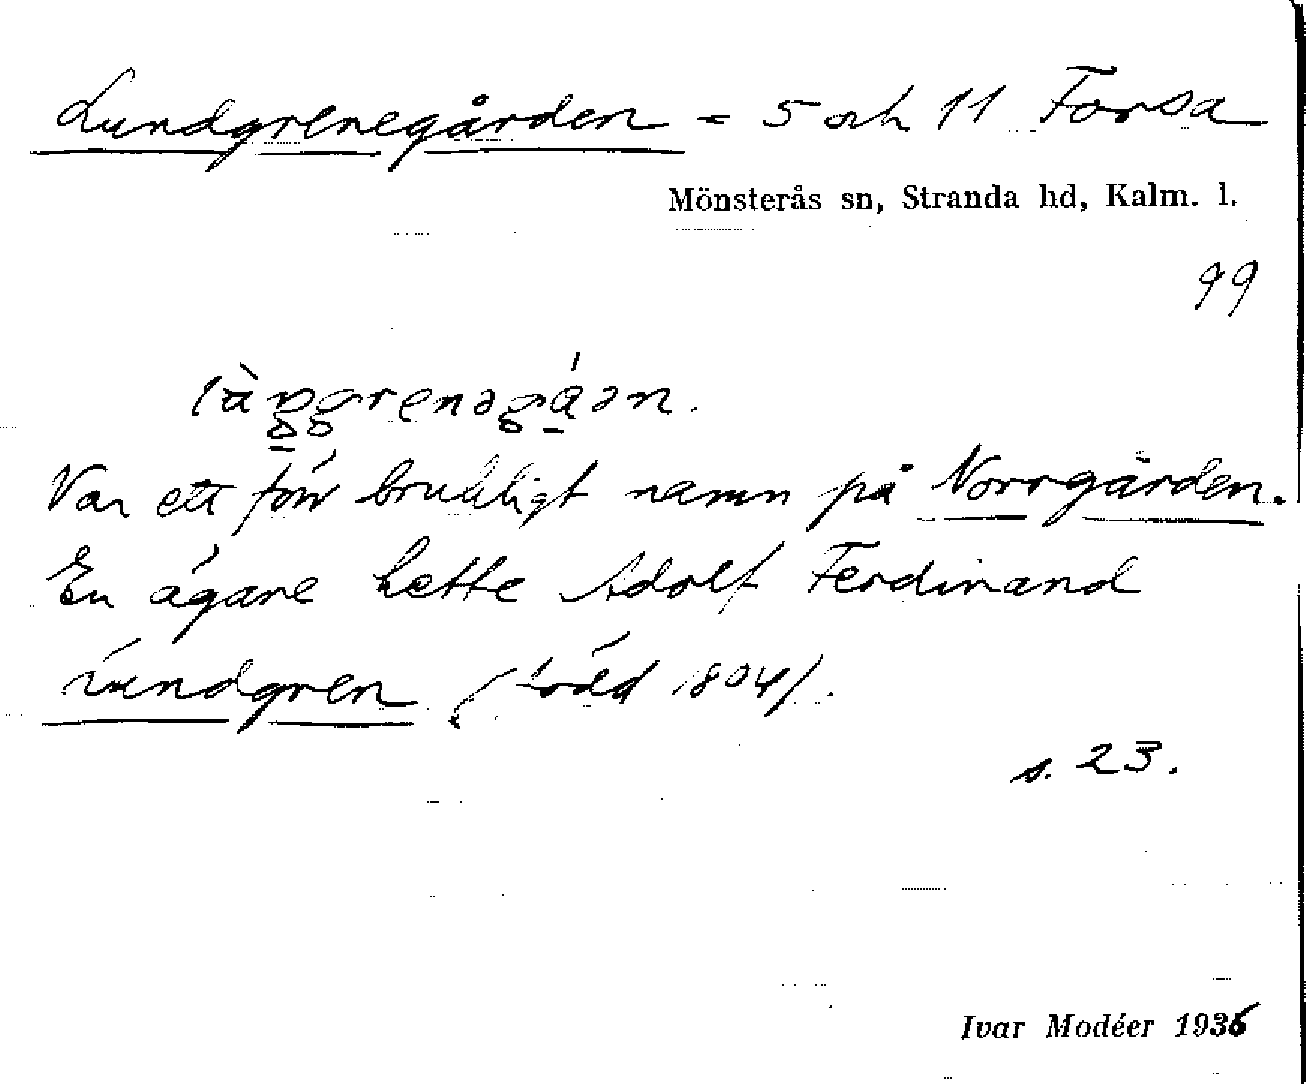 Lundgrenegården = 5 och 11 Forsa
Mönsterås sn, Stranda hd, Kalm. l.
99
Var ett förr brukligt namn på Norrgården.
En ägare hette Adolf Ferdinand
Lundgren (född 1804).
s. 23.
Ivar Modéer 1936